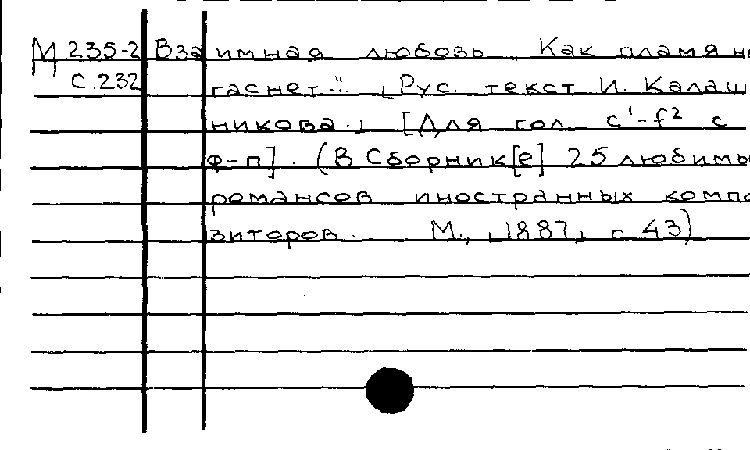 М 235-2 Взаимная любовь. Как пламя н
С.232 гаснет.." [Рус. текст И. Калаш
никова.] [Для гол. c¹-f² с
ф-п]. (В Сборник[е] 25 любимы
романсов иностранных компо
зиторов. М., [1887], с 43)